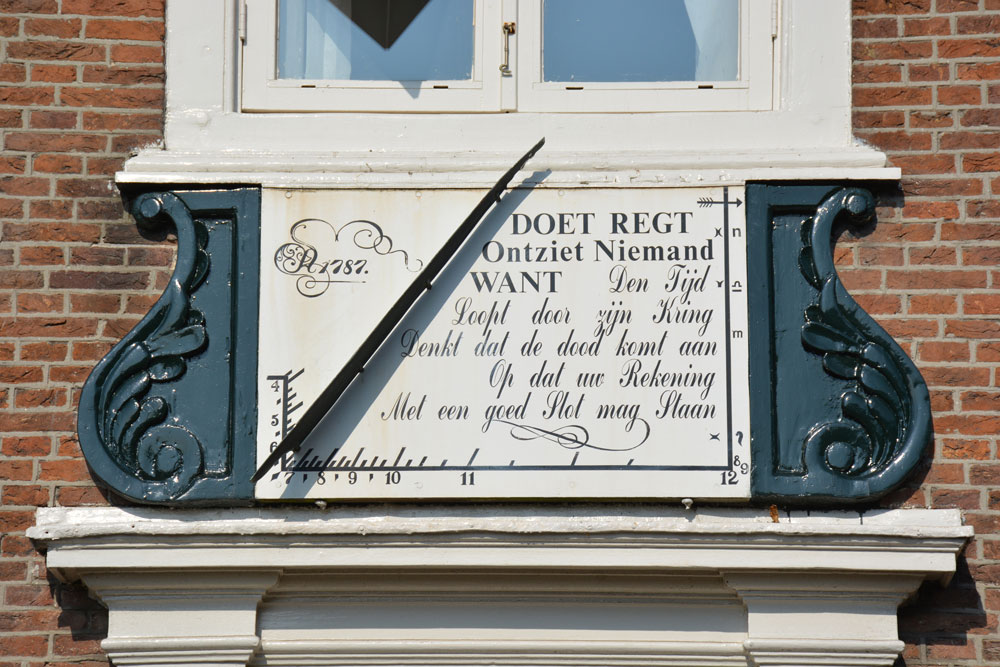 A 1787.
DOET REGT
Ontziet Niemand
WANT Den Tijd
Loopt door zijn Kring
Denkt dat de dood komt aan
Op dat uw Rekening
Met een goed Slot mag Staan
4
5
6
7 8 9 10 11 12